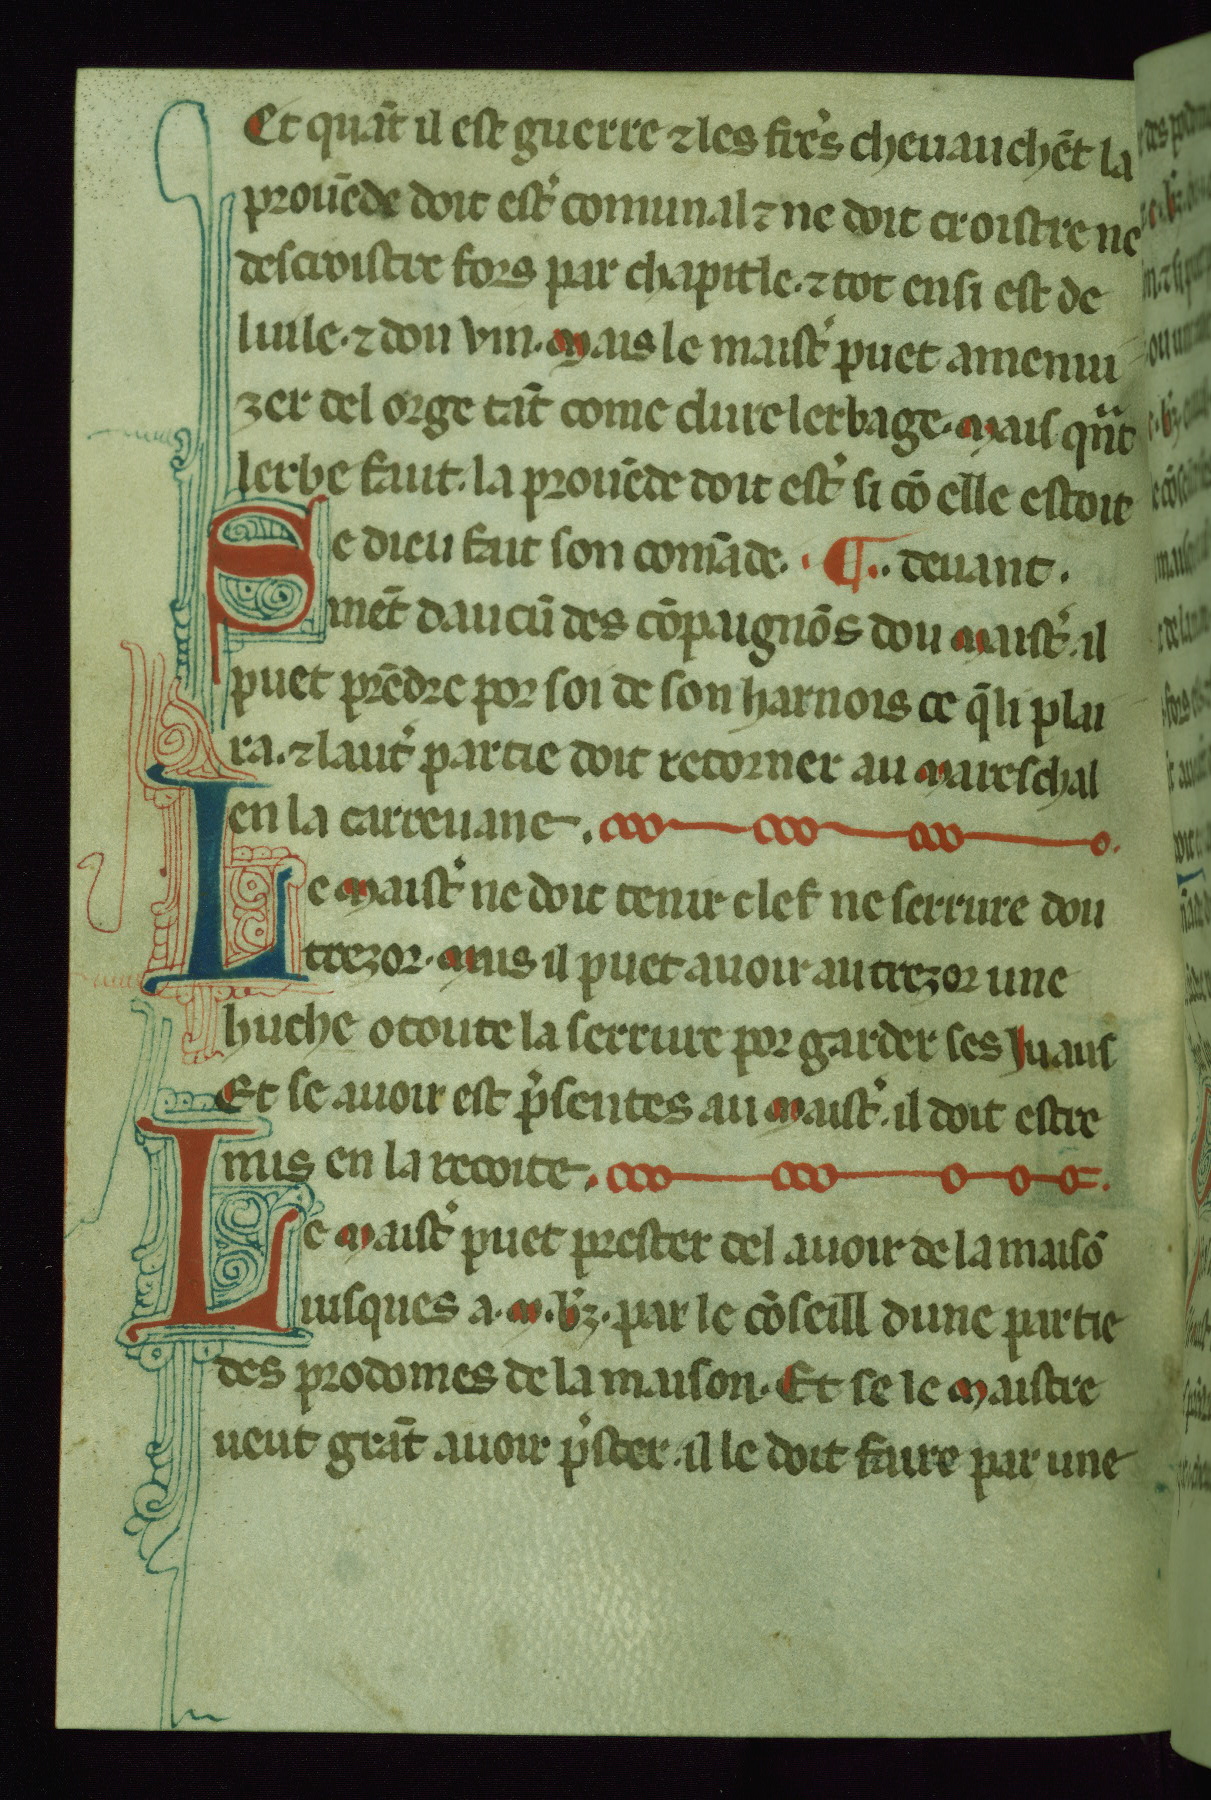 Et quāt il est guerre ⁊ les frẽs cheuauchẽt la
prouẽde doit estˀ comunal ⁊ ne doit croistre ne
descroistre fors par chapitle. ⁊ tot ensi est de
luile. ⁊ dou vin. Mais le maistˀ puet amenui
zer del orge tāt come dure lerbage. Mais qñt
lerbe faut. la prouẽde doit estˀ si cõ elle estoit
Se dieu fait son comāde. ¶ deuant.
mẽt daucũ des cõpaignõs dou Maistˀ. il
puet prẽdre por soi de son harnois ce q̃ li plai
ra. ⁊ lautˀ partie doit retorner au Mareschal
en la carreuane.
Le Maistˀ ne doit tenir clef ne serrure dou
trezor. Mais il puet auoir au trezor une
huche o toute la serrure por garder ses Juaus
Et se auoir est pˀsentes au Maistˀ. il doit estre
mis en la recoite.
Le Maistˀ puet prester del auoir de la maisõ
iusques a .M. bz. par le cõseill dune partie
des prodomes de la maison. Et se le Maistre
ueut grāt auoir pˀster. il le doit faire par une